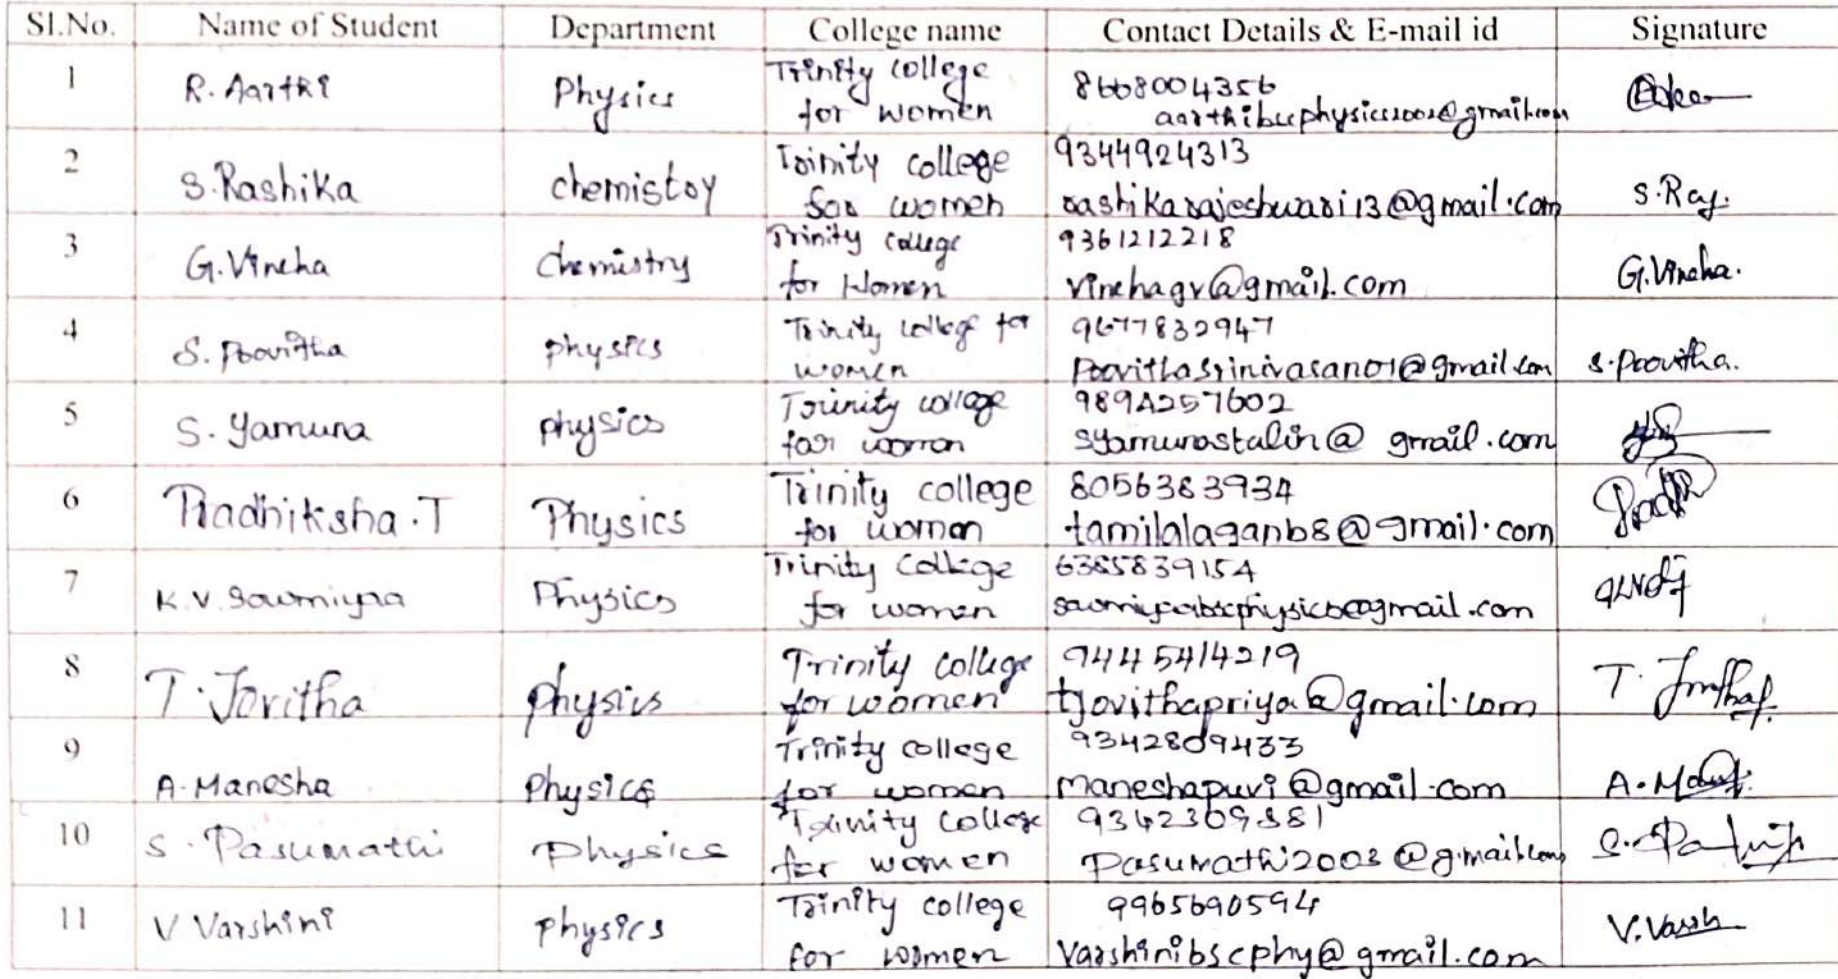 Sl.No. Name of Student Department College name Contact Details & E-mail id Signature
1 R. Aarthi Physics Trinity college for women 8668004356
aarthibscphysics2002@gmail.com
2 S.Rashika chemistry Trinity college for women 9344924313
rashikarajeshwari13@gmail.com S.Raj.
3 G.Vineha Chemistry Trinity college for Women 9361212218
vinehagv@gmail.com G.Vineha.
4 S. Poovitha physics Trinity college for women 9677832947
Poovithasrinivasan01@gmail.com S.Poovitha.
5 S. Yamuna physics Trinity college for women 9894257602
syamunastalin@gmail.com
6 Pradhiksha.T Physics Trinity college for women 8056383934
tamilalagan68@gmail.com
7 K.V.Sowmiyaa Physics Trinity College for women 6385839154
8 T.Jovitha physics Trinity college for women 9445414219
tjovithapriya@gmail.com T.
9 A.Manesha Physics Trinity college for women 9342809433
maneshapuvi@gmail.com A.
10 S. Pasumathi Physics Trinity College for women
Pasumathi2003@gmail.com S.
11 V.Varshini physics Trinity college for women 9965690594
varshinibscphy@gmail.com V.Varsh